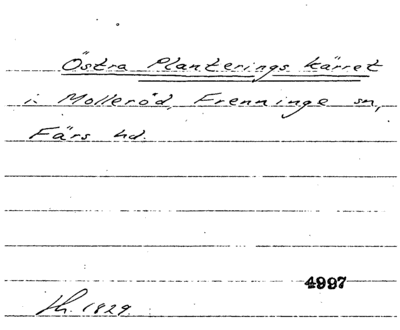 Östra Planterings kärret
i Molleröd, Frenninge sn,
Färs hd.
4997
1829